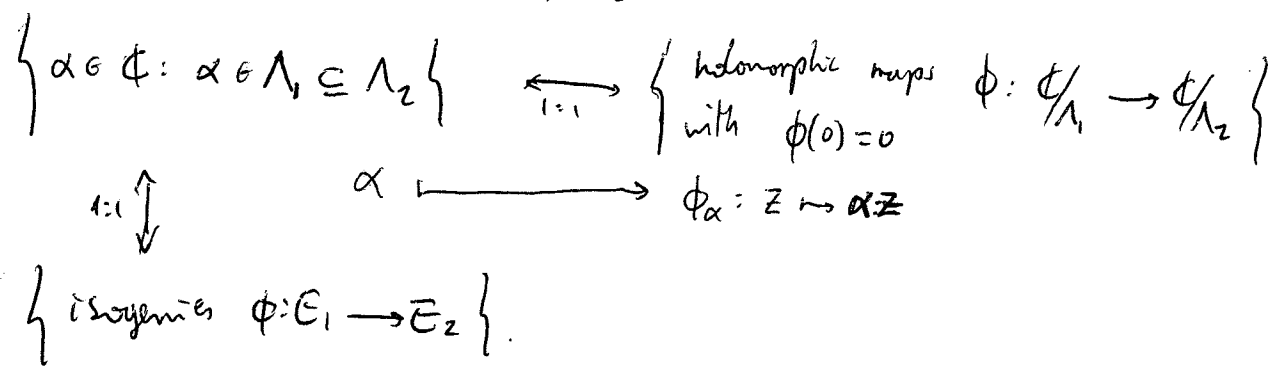 { α ∈ ℂ : α ∈ Λ₁ ⊆ Λ₂ } ⟷ 1:1 { holomorphic maps φ: ℂ/Λ₁ ⟶ ℂ/Λ₂ }
with φ(0)=0
α ⟼ φ_α : z ⇝ αz
1:1 ↕
{ isogenies φ: E₁ ⟶ E₂ }.